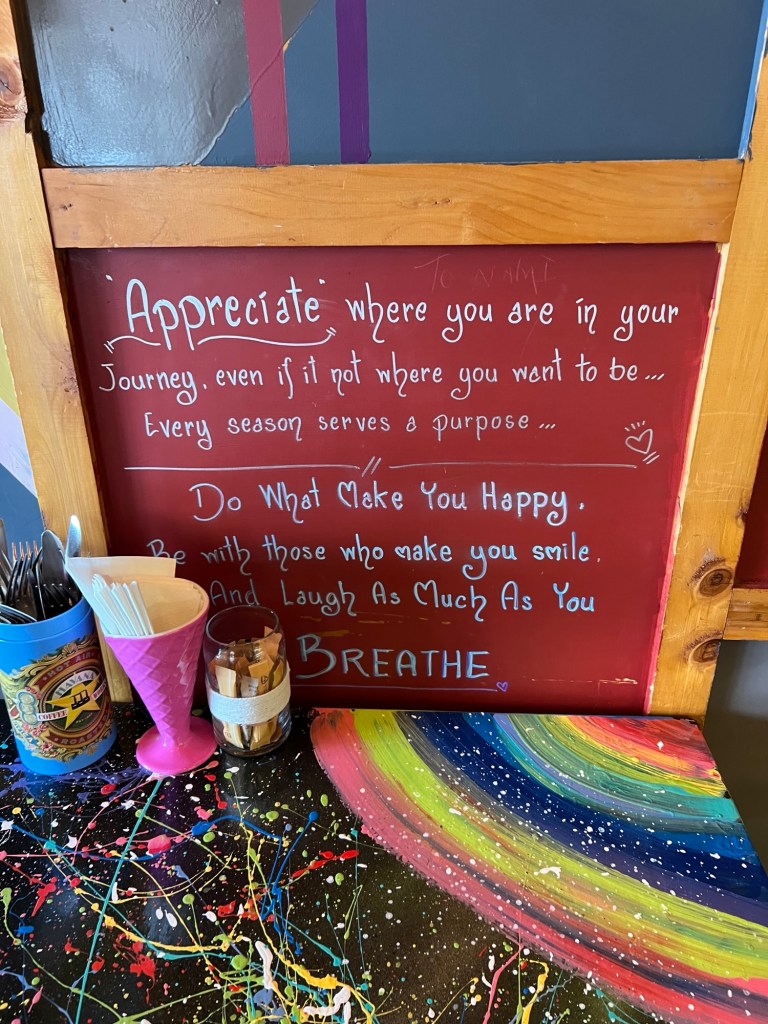 To NAMI
"Appreciate" where you are in your
Journey, even if it not where you want to be...
Every season serves a purpose...
Do What Make You Happy.
Be with those who make you smile.
And Laugh As Much As You
BREATHE
HAVANA
COFFEE